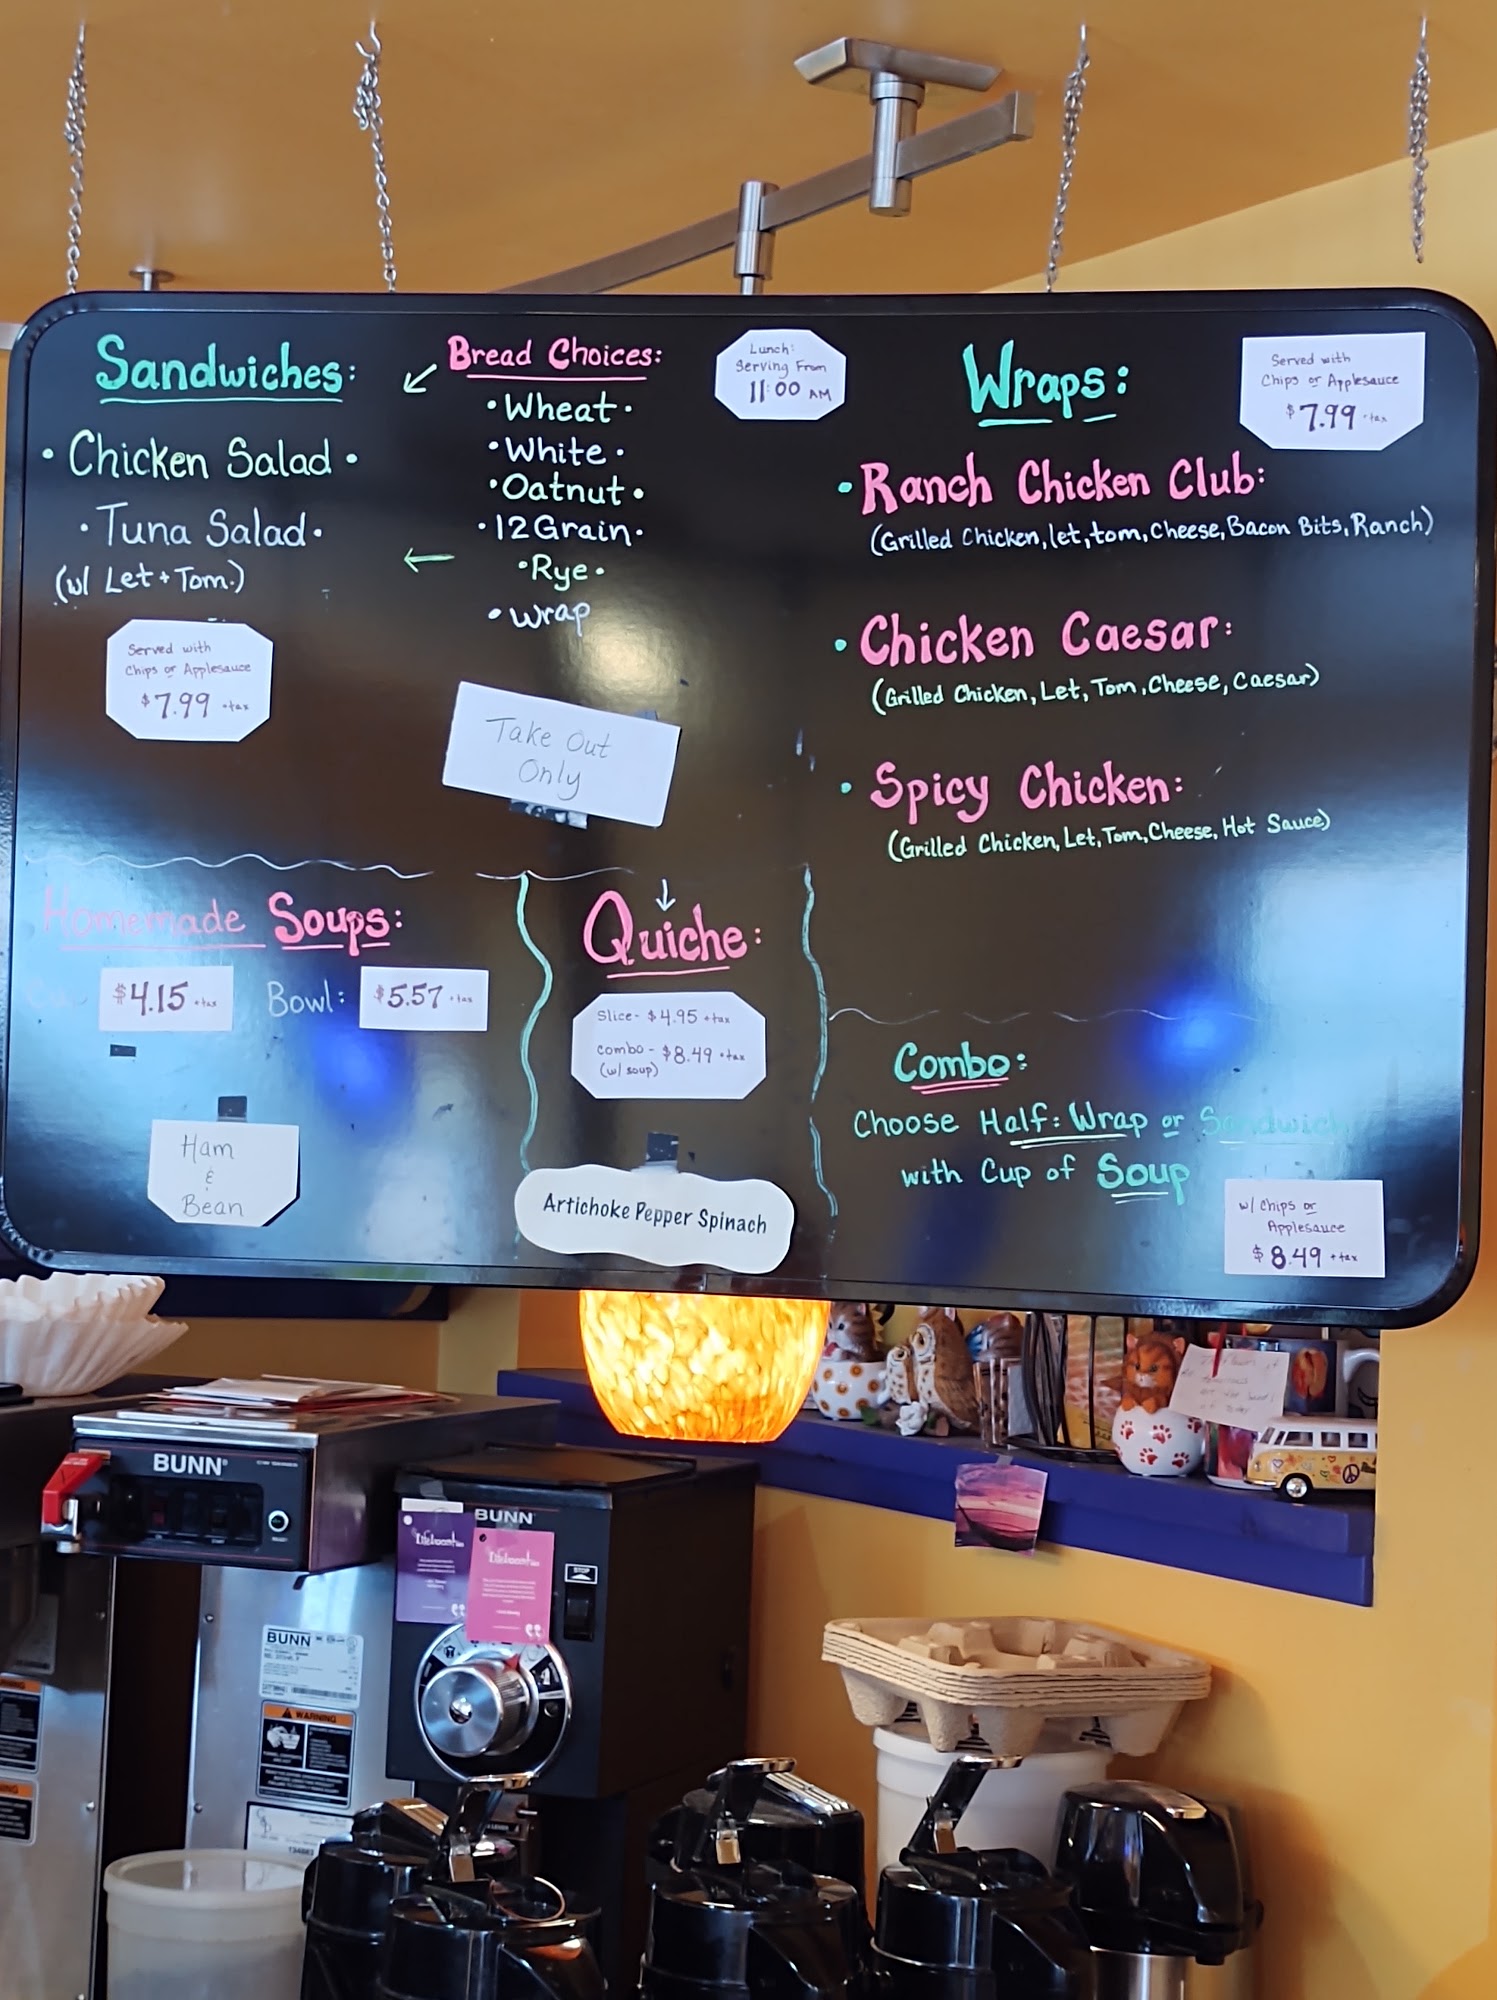 Sandwiches:
• Chicken Salad •
• Tuna Salad •
(w/ Let + Tom.)
Served with
Chips or Applesauce
$7.99 +tax
Bread Choices:
• Wheat •
• White •
• Oatnut •
• 12 Grain •
• Rye •
• Wrap
Lunch:
Serving From
11:00 AM
Take Out
Only
Wraps:
Served with
Chips or Applesauce
$7.99 +tax
• Ranch Chicken Club:
(Grilled Chicken, let, tom, Cheese, Bacon Bits, Ranch)
• Chicken Caesar:
(Grilled Chicken, Let, Tom, Cheese, Caesar)
• Spicy Chicken:
(Grilled Chicken, Let, Tom, Cheese, Hot Sauce)
Homemade Soups:
$4.15 +tax Bowl: $5.57 +tax
Ham
&
Bean
Quiche:
Slice - $4.95 +tax
combo - $8.49 +tax
(w/ soup)
Artichoke Pepper Spinach
Combo:
Choose Half: Wrap or Sandwich
with Cup of Soup
w/ Chips or
Applesauce
$8.49 +tax
BUNN
BUNN
STOP
BUNN
WARNING